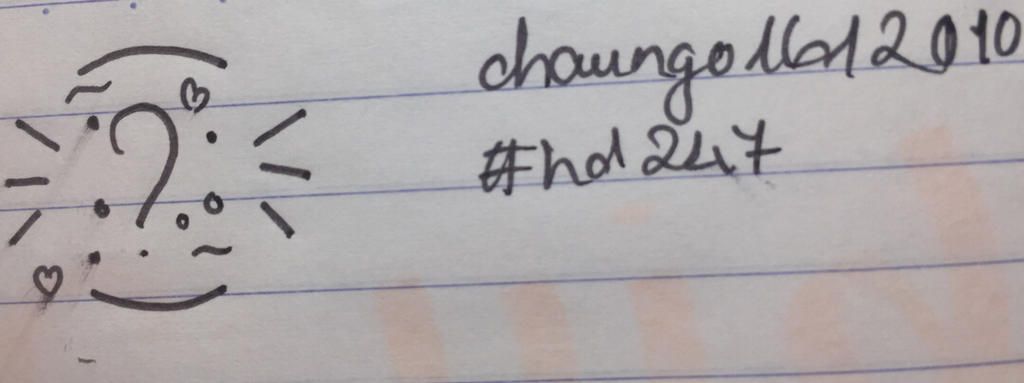 ?
chaungo16d12010
#hd247